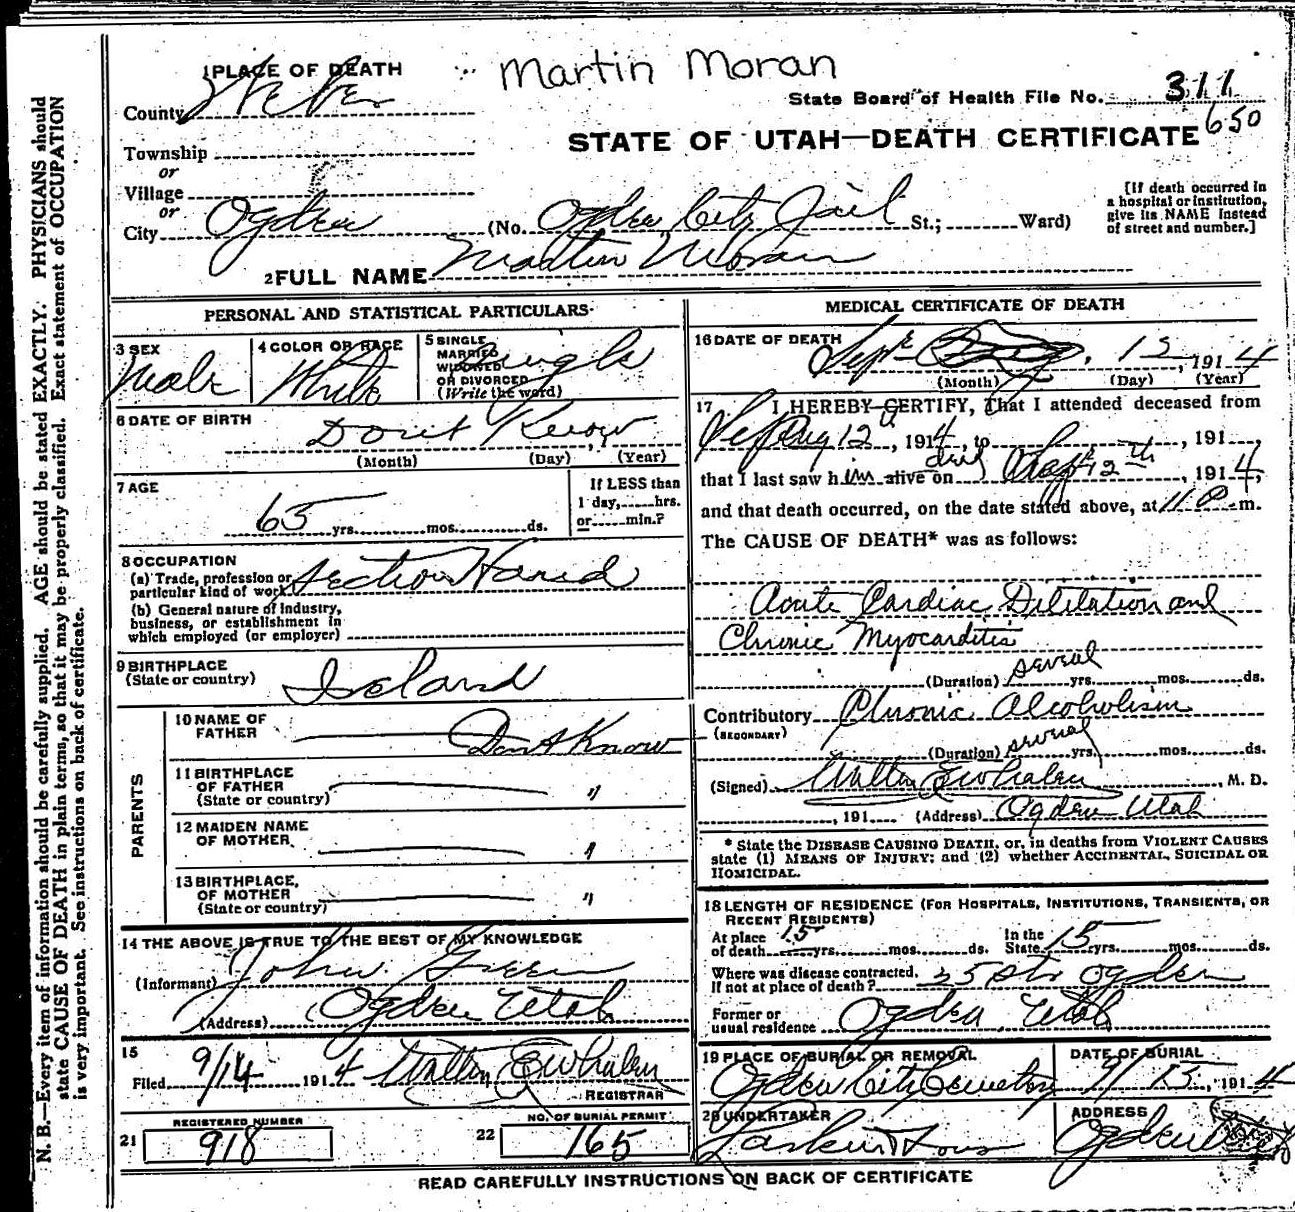 Martin Moran
1 PLACE OF DEATH
State Board of Health File No. 311
County Weber
650
STATE OF UTAH—DEATH CERTIFICATE
Township
or
Village
or
City Ogden (No. Ogden City Jail St.; Ward)
[If death occurred in a hospital or institution, give its NAME instead of street and number.]
2 FULL NAME Martin Moran
PERSONAL AND STATISTICAL PARTICULARS
3 SEX Male
4 COLOR OR RACE White
5 SINGLE MARRIED WIDOWED OR DIVORCED (Write the word) Single
6 DATE OF BIRTH Dont Know
(Month) (Day) (Year)
7 AGE 65 yrs. mos. ds.
If LESS than 1 day, hrs. or min.?
8 OCCUPATION
(a) Trade, profession or particular kind of work Section Hand
(b) General nature of industry, business, or establishment in which employed (or employer)
9 BIRTHPLACE
(State or country)
PARENTS
10 NAME OF FATHER Dont Know
11 BIRTHPLACE OF FATHER (State or country) "
12 MAIDEN NAME OF MOTHER "
13 BIRTHPLACE, OF MOTHER (State or country) "
14 THE ABOVE IS TRUE TO THE BEST OF MY KNOWLEDGE
(Informant) John Green
(Address) Ogden Utah
15
Filed 9/14 1914 Walter E Whalen
REGISTRAR
21 REGISTERED NUMBER 918
22 NO. OF BURIAL PERMIT 165
MEDICAL CERTIFICATE OF DEATH
16 DATE OF DEATH Sept 12, 1914
(Month) (Day) (Year)
17 I HEREBY CERTIFY, That I attended deceased from
Sept 12th, 1914, to , 191 ,
that I last saw him alive on Sept 12th, 1914,
and that death occurred, on the date stated above, at 11 P m.
The CAUSE OF DEATH* was as follows:
Acute Cardiac Dilitation and
Chronic Myocarditis
(Duration) several yrs. mos. ds.
Contributory Chronic Alcoholism
(SECONDARY)
(Duration) several yrs. mos. ds.
(Signed) Walter E Whalen, M. D.
, 191 (Address) Ogden Utah
* State the DISEASE CAUSING DEATH, or, in deaths from VIOLENT CAUSES
state (1) MEANS OF INJURY; and (2) whether ACCIDENTAL, SUICIDAL OR
HOMICIDAL.
18 LENGTH OF RESIDENCE (FOR HOSPITALS, INSTITUTIONS, TRANSIENTS, OR
RECENT RESIDENTS)
At place of death 15 yrs. mos. ds. In the State 15 yrs. mos. ds.
Where was disease contracted, if not at place of death? 25 St Ogden
Former or usual residence Ogden Utah
19 PLACE OF BURIAL OR REMOVAL Ogden City Cemetery
DATE OF BURIAL 9/15, 1914
20 UNDERTAKER
ADDRESS Ogden
READ CAREFULLY INSTRUCTIONS ON BACK OF CERTIFICATE
N. B.—Every item of information should be carefully supplied. AGE should be stated EXACTLY. PHYSICIANS should
state CAUSE OF DEATH in plain terms, so that it may be properly classified. Exact statement of OCCUPATION
is very important. See instructions on back of certificate.